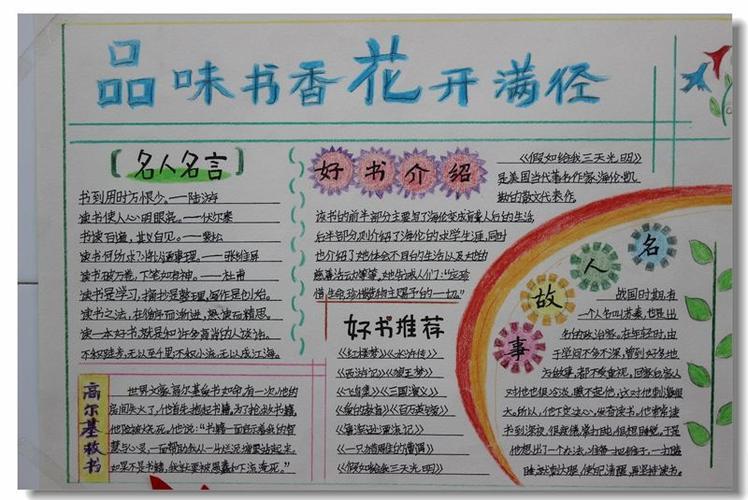 品味书香花开满径
【名人名言】
书到用时方恨少。——陆游
读书使人心明眼亮。——伏尔泰
书读百遍，其义自见。——裴松
读书破万卷，下笔如有神。——杜甫
读书是学习，摘抄是整理，写作是创始。
读书之法，在循序而渐进，熟读而精思。
读一本好书，就是和许多高尚的人谈话。
不积跬步，无以至千里；不积小流，无以成江海。
高尔基救书
世界文豪高尔基爱书如命。有一次，他的
房间失火了，他首先抱起书籍，为了抢救书籍，
他险被烧死。他说：“书籍一面启示着我的智
慧与心灵，一面帮助我从一片烂泥塘里站起来，
如果不是书籍，我就要被愚蠢和下流淹死。”
好书介绍
《假如给我三天光明》
是美国当代著名作家海伦·凯
勒的散文代表作。
该书的前半部分主要写了海伦变成盲聋人后的生活，
后半部分则介绍了海伦的求学生涯，同时
也介绍了她体会不同的生活以及她的
慈善活动等等，她告诫人们：“应珍
惜生命，珍惜造物主赐予的一切。”
好书推荐
《红楼梦》《水浒传》
《西游记》
《三国演义》
《爱的教育》
《鲁滨逊漂流记》
《假如给我三天光明》
名人故事
战国时期，有
一个人名叫苏秦，也是出
名的政治家。在年轻时，由
于学问不多不深，曾到好多地
方做事，都不受重视。回家后家人
对他也很冷淡，瞧不起他。这对他刺激很
大。所以，他下定决心，发奋读书。他常常读
书到深夜，很疲倦，常打盹，很想睡觉。于是
他想出了一个办法，准备一把锥子，一打瞌